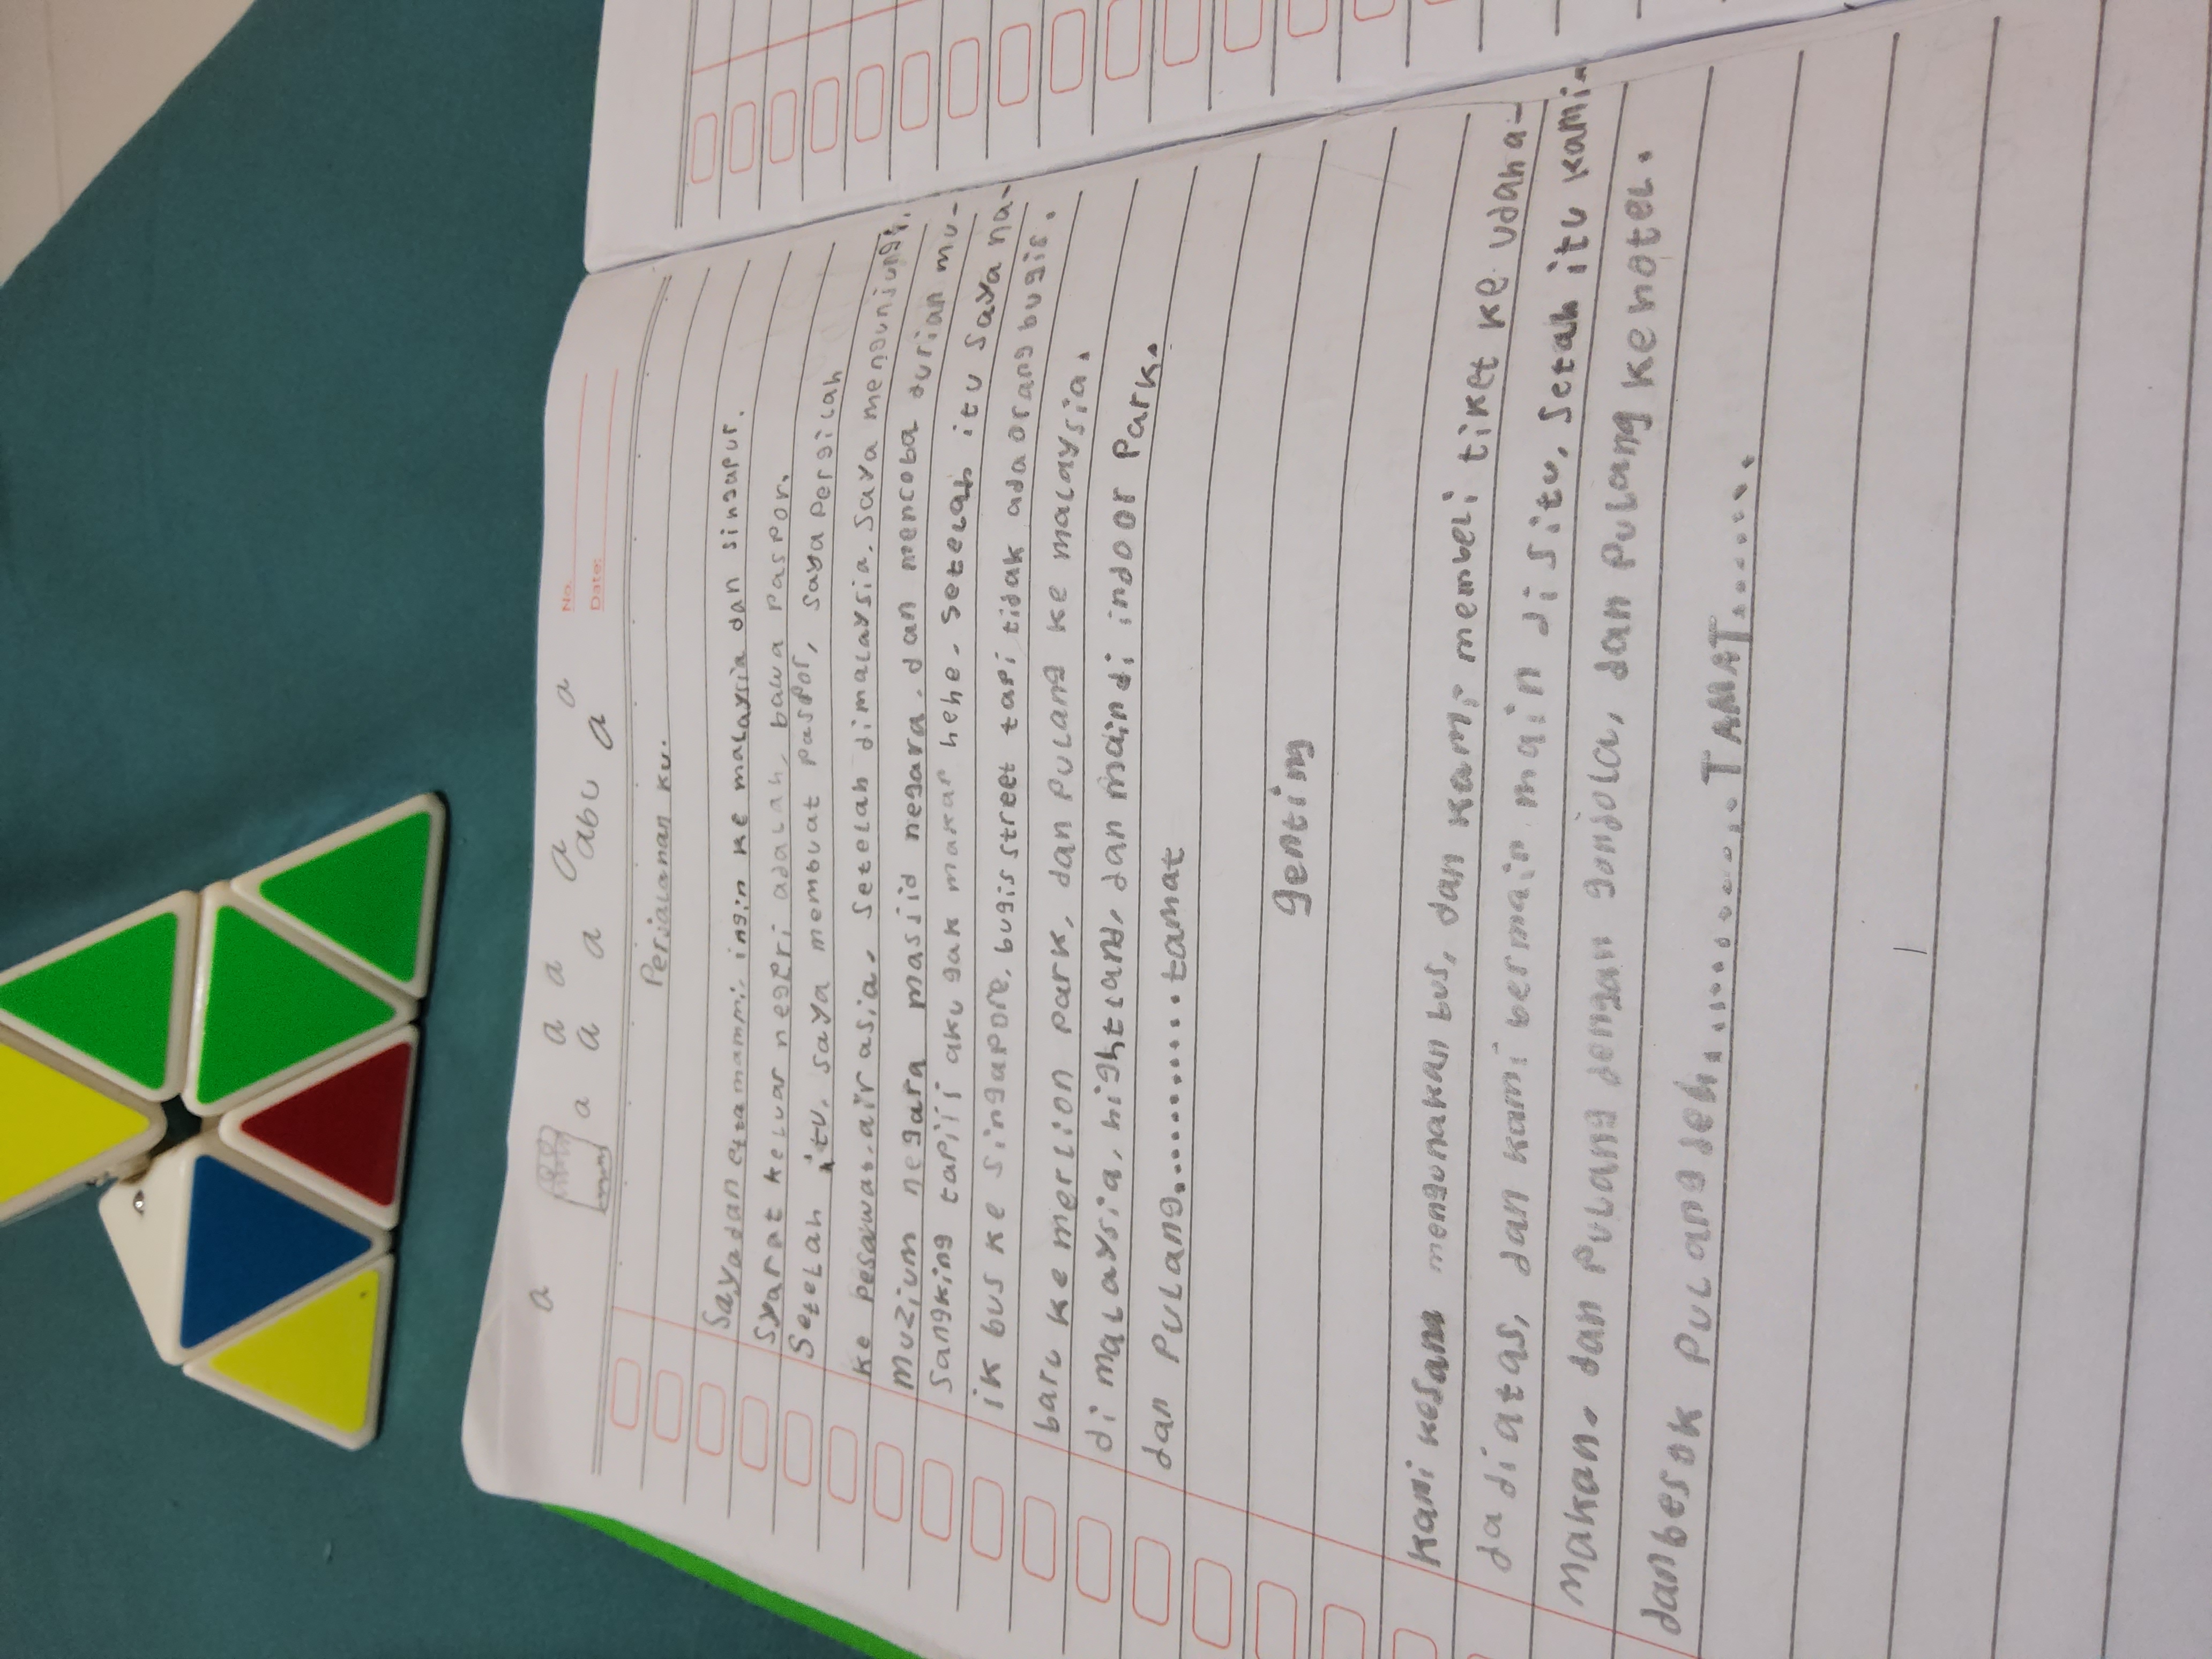 a a a a a
a a a abu a
No.
Date:
Perjalanan ku.
Saya dan mammi, ingin ke malaysia dan singapur.
Syarat keluar negeri adalah, bawa paspor.
Setelah itu, saya membuat paspor, saya pergilah
ke pesawat, air asia, setelah dimalaysia, saya mengunjungi,
muzium negara masjid negara, dan mencoba durian mu-
sangking tapiii aku gak makan hehe. setelah itu saya na-
ik bus ke singapore, bugis street tapi tidak ada orang bugis.
baru ke merlion park, dan pulang ke malaysia.
di malaysia, hightland, dan main di indoor park.
dan pulang............tamat
genting
kami kesana mengunakan bus, dan kami membeli tiket ke udaha-
da diatas, dan kami bermain main di situ, setah itu kami
makan, dan pulang dengan gondola, dan pulang kehotel.
dan besok pulang deh.............TAMAT.......